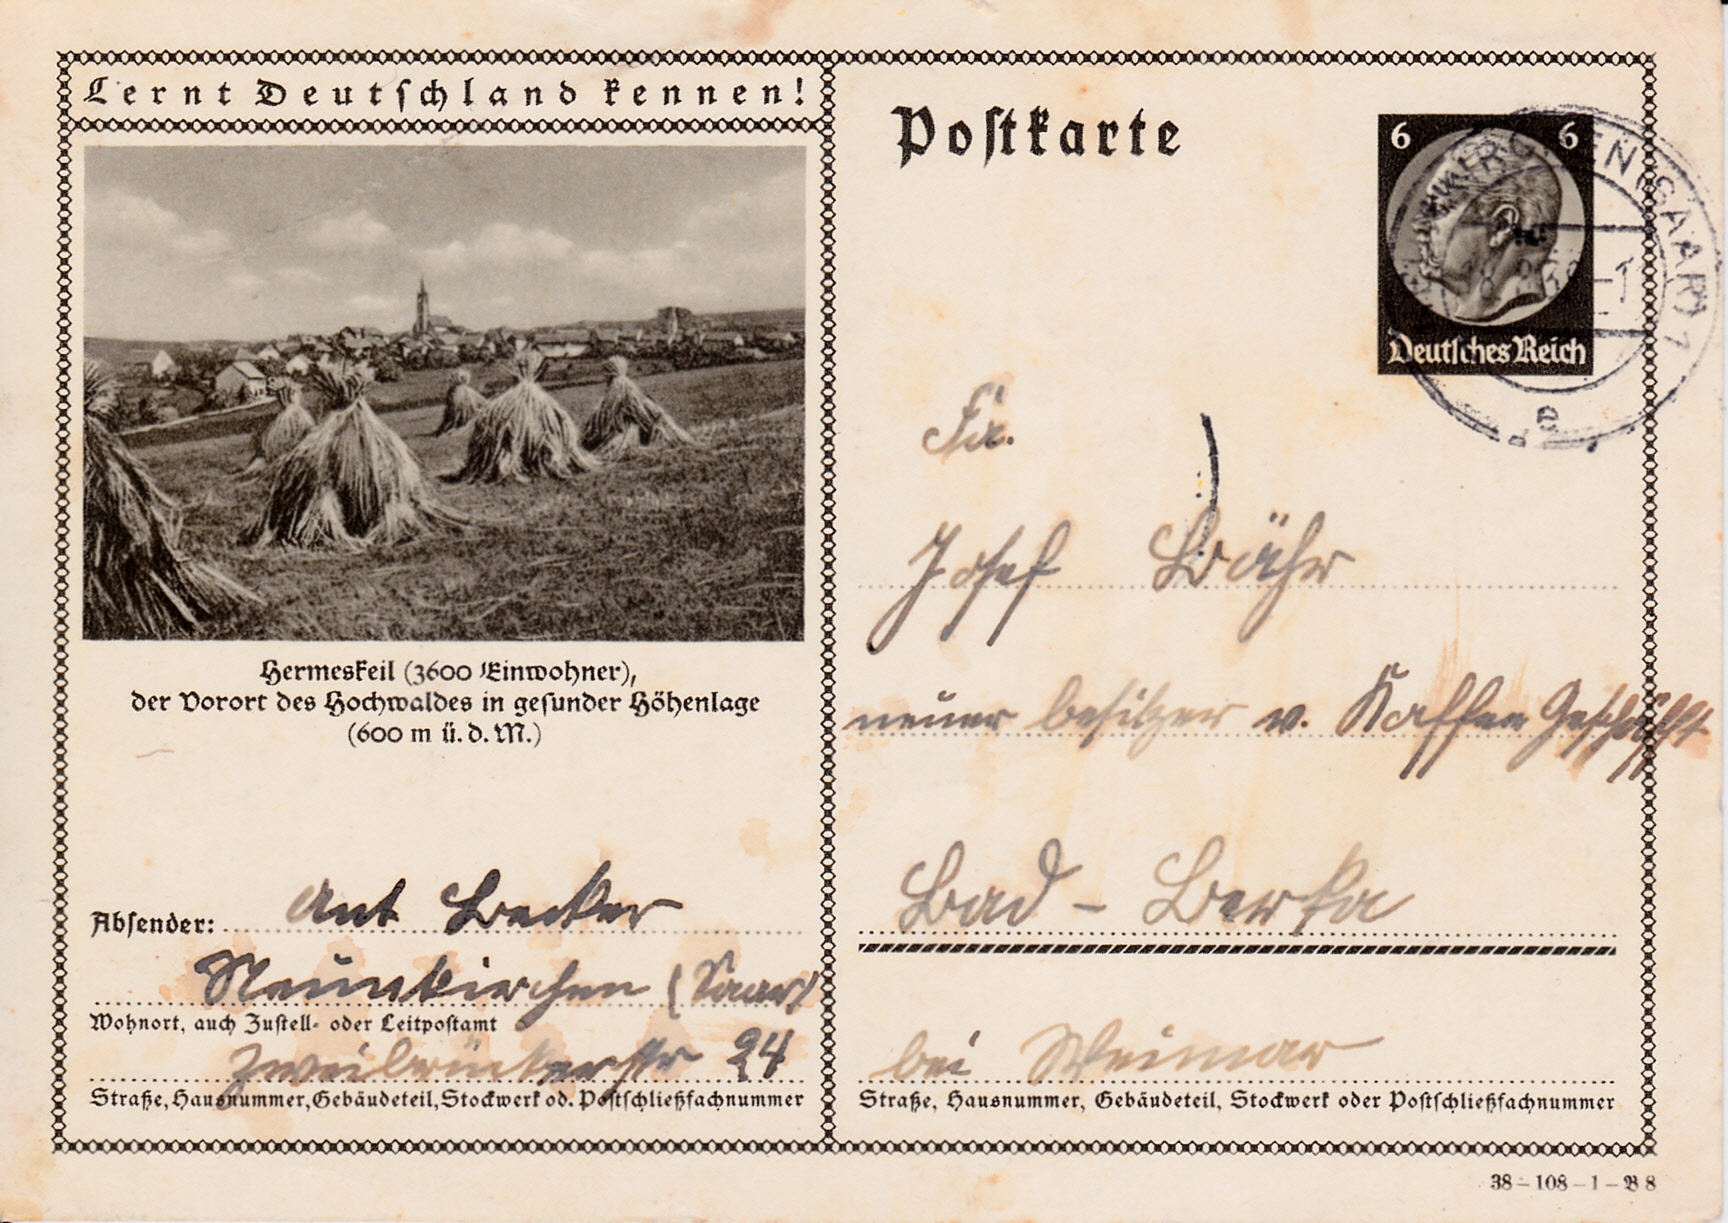 Lernt Deutschland kennen!
Hermeskeil (3600 Einwohner),
der Vorort des Hochwaldes in gesunder Höhenlage
(600 m ü. d. M.)
Absender: Ant Becker
Neunkirchen (Saar)
Wohnort, auch Zustell- oder Leitpostamt
Zweibrückerstr 24
Straße, Hausnummer, Gebäudeteil, Stockwerk od. Postschließfachnummer
Postkarte
6 6
Deutsches Reich
NEUNKIRCHEN (SAAR) 1
e
Fa.
Josef Bähr
neuer besitzer v. Kaffee Geschäft
Bad - Berka
bei Weimar
Straße, Hausnummer, Gebäudeteil, Stockwerk oder Postschließfachnummer
38 – 108 – 1 – B 8